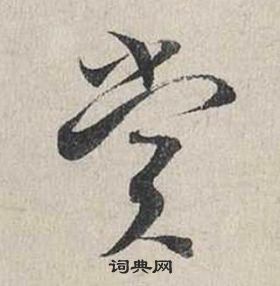 赏
词典网